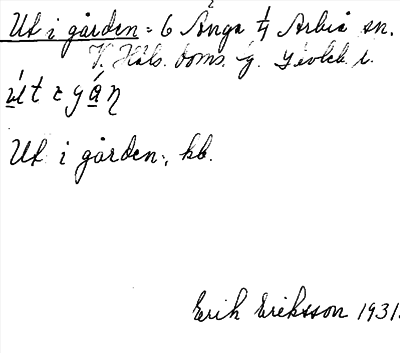 Ut i gården = 6 Ånga ¼ Arbrå sn.
V. Häls. doms. g. Gävleb. l.
Ut i gården, kb.
Erik Eriksson 1931.